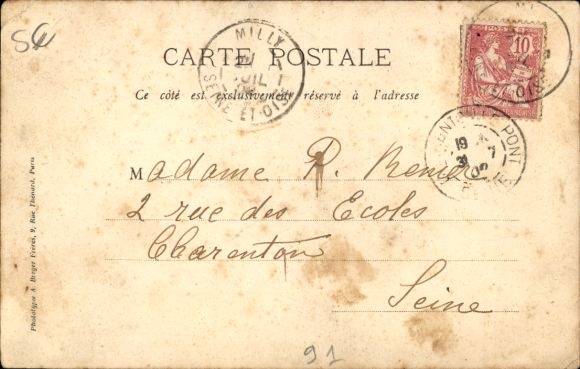 CARTE POSTALE
Ce côté est exclusivement réservé à l'adresse
MILLY
SEINE-ET-OISE
POSTES
10
PONT
19
Madame P. Remer
2 rue des Ecoles
Charenton
Seine
Phototypie A. Breger Frères, 9, Rue Thénard, Paris
91